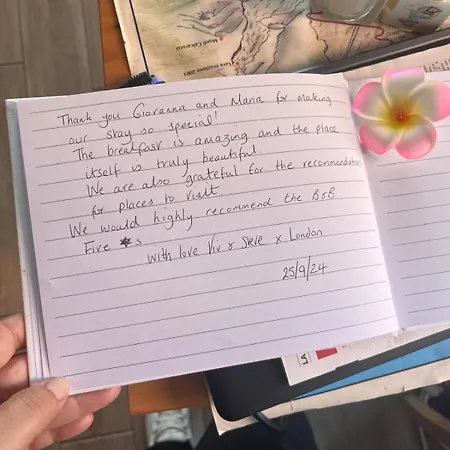 Thank you Giovanna and Maria for making
our stay so special!
The breakfast is amazing and the place
itself is truly beautiful.
We are also grateful for the recommendations
for places to visit.
We would highly recommend the B&B
Five *s
With love Viv x Steve x London
25/9/24